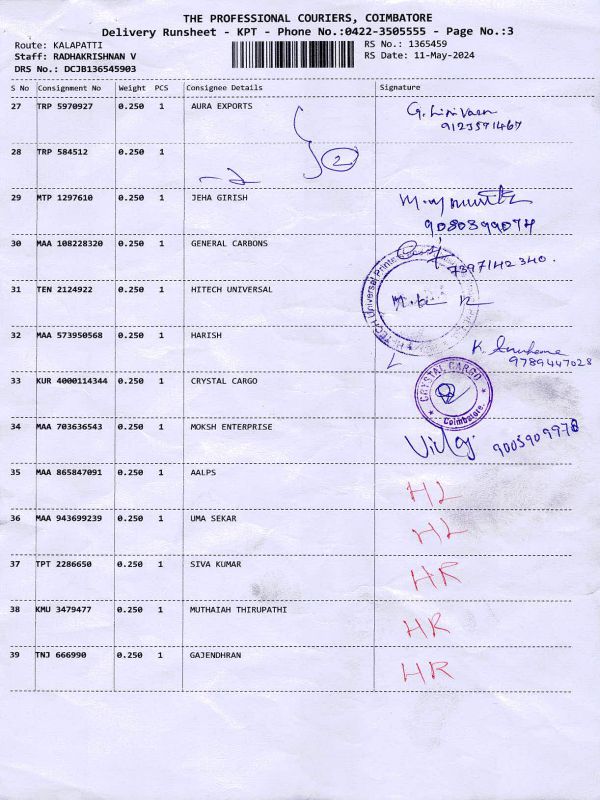 THE PROFESSIONAL COURIERS, COIMBATORE
Delivery Runsheet - KPT - Phone No.:0422-3505555 - Page No.:3
Route: KALAPATTI RS No.: 1365459
Staff: RADHAKRISHNAN V RS Date: 11-May-2024
DRS No.: DCJB136545903
S No Consignment No Weight PCS Consignee Details Signature
27 TRP 5970927 0.250 1 AURA EXPORTS
9123571467
28 TRP 584512 0.250 1 2
29 MTP 1297610 0.250 1 JEHA GIRISH
9080399074
30 MAA 108228320 0.250 1 GENERAL CARBONS
7397142340.
31 TEN 2124922 0.250 1 HITECH UNIVERSAL
HI-TECH Universal Printe
32 MAA 573950568 0.250 1 HARISH
9789447028
33 KUR 4000114344 0.250 1 CRYSTAL CARGO
CRYSTAL CARGO
Coimbatore.
34 MAA 703636543 0.250 1 MOKSH ENTERPRISE
9003909978
35 MAA 865847091 0.250 1 AALPS HL
36 MAA 943699239 0.250 1 UMA SEKAR HL
37 TPT 2286650 0.250 1 SIVA KUMAR HR
38 KMU 3479477 0.250 1 MUTHAIAH THIRUPATHI HR
39 TNJ 666990 0.250 1 GAJENDHRAN HR